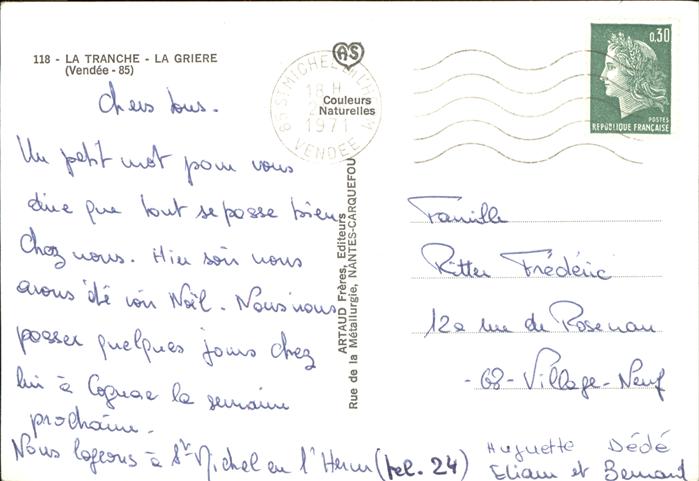 118 - LA TRANCHE - LA GRIERE
(Vendée - 85)
Chers tous.
Un petit mot pour vous
dire que tout se passe bien
Chez nous. Hier soir nous
avons été voir Noël. Nous nous
passer quelques jours chez
lui à Cognac la semaine
prochaine.
Nous logeons à St Michel en l'Herm (tel. 24)
AS
Couleurs
Naturelles
85 ST MICHEL EN L'HERM
18 H
1971
VENDEE
ARTAUD Frères, Editeurs
Rue de la Métallurgie, NANTES-CARQUEFOU
0,30
POSTES
REPUBLIQUE FRANÇAISE
Famille
Ritter Frédéric
12a rue de Rosenau
- 68 - Village-Neuf
Huguette Dédé
Eliam et Bernard